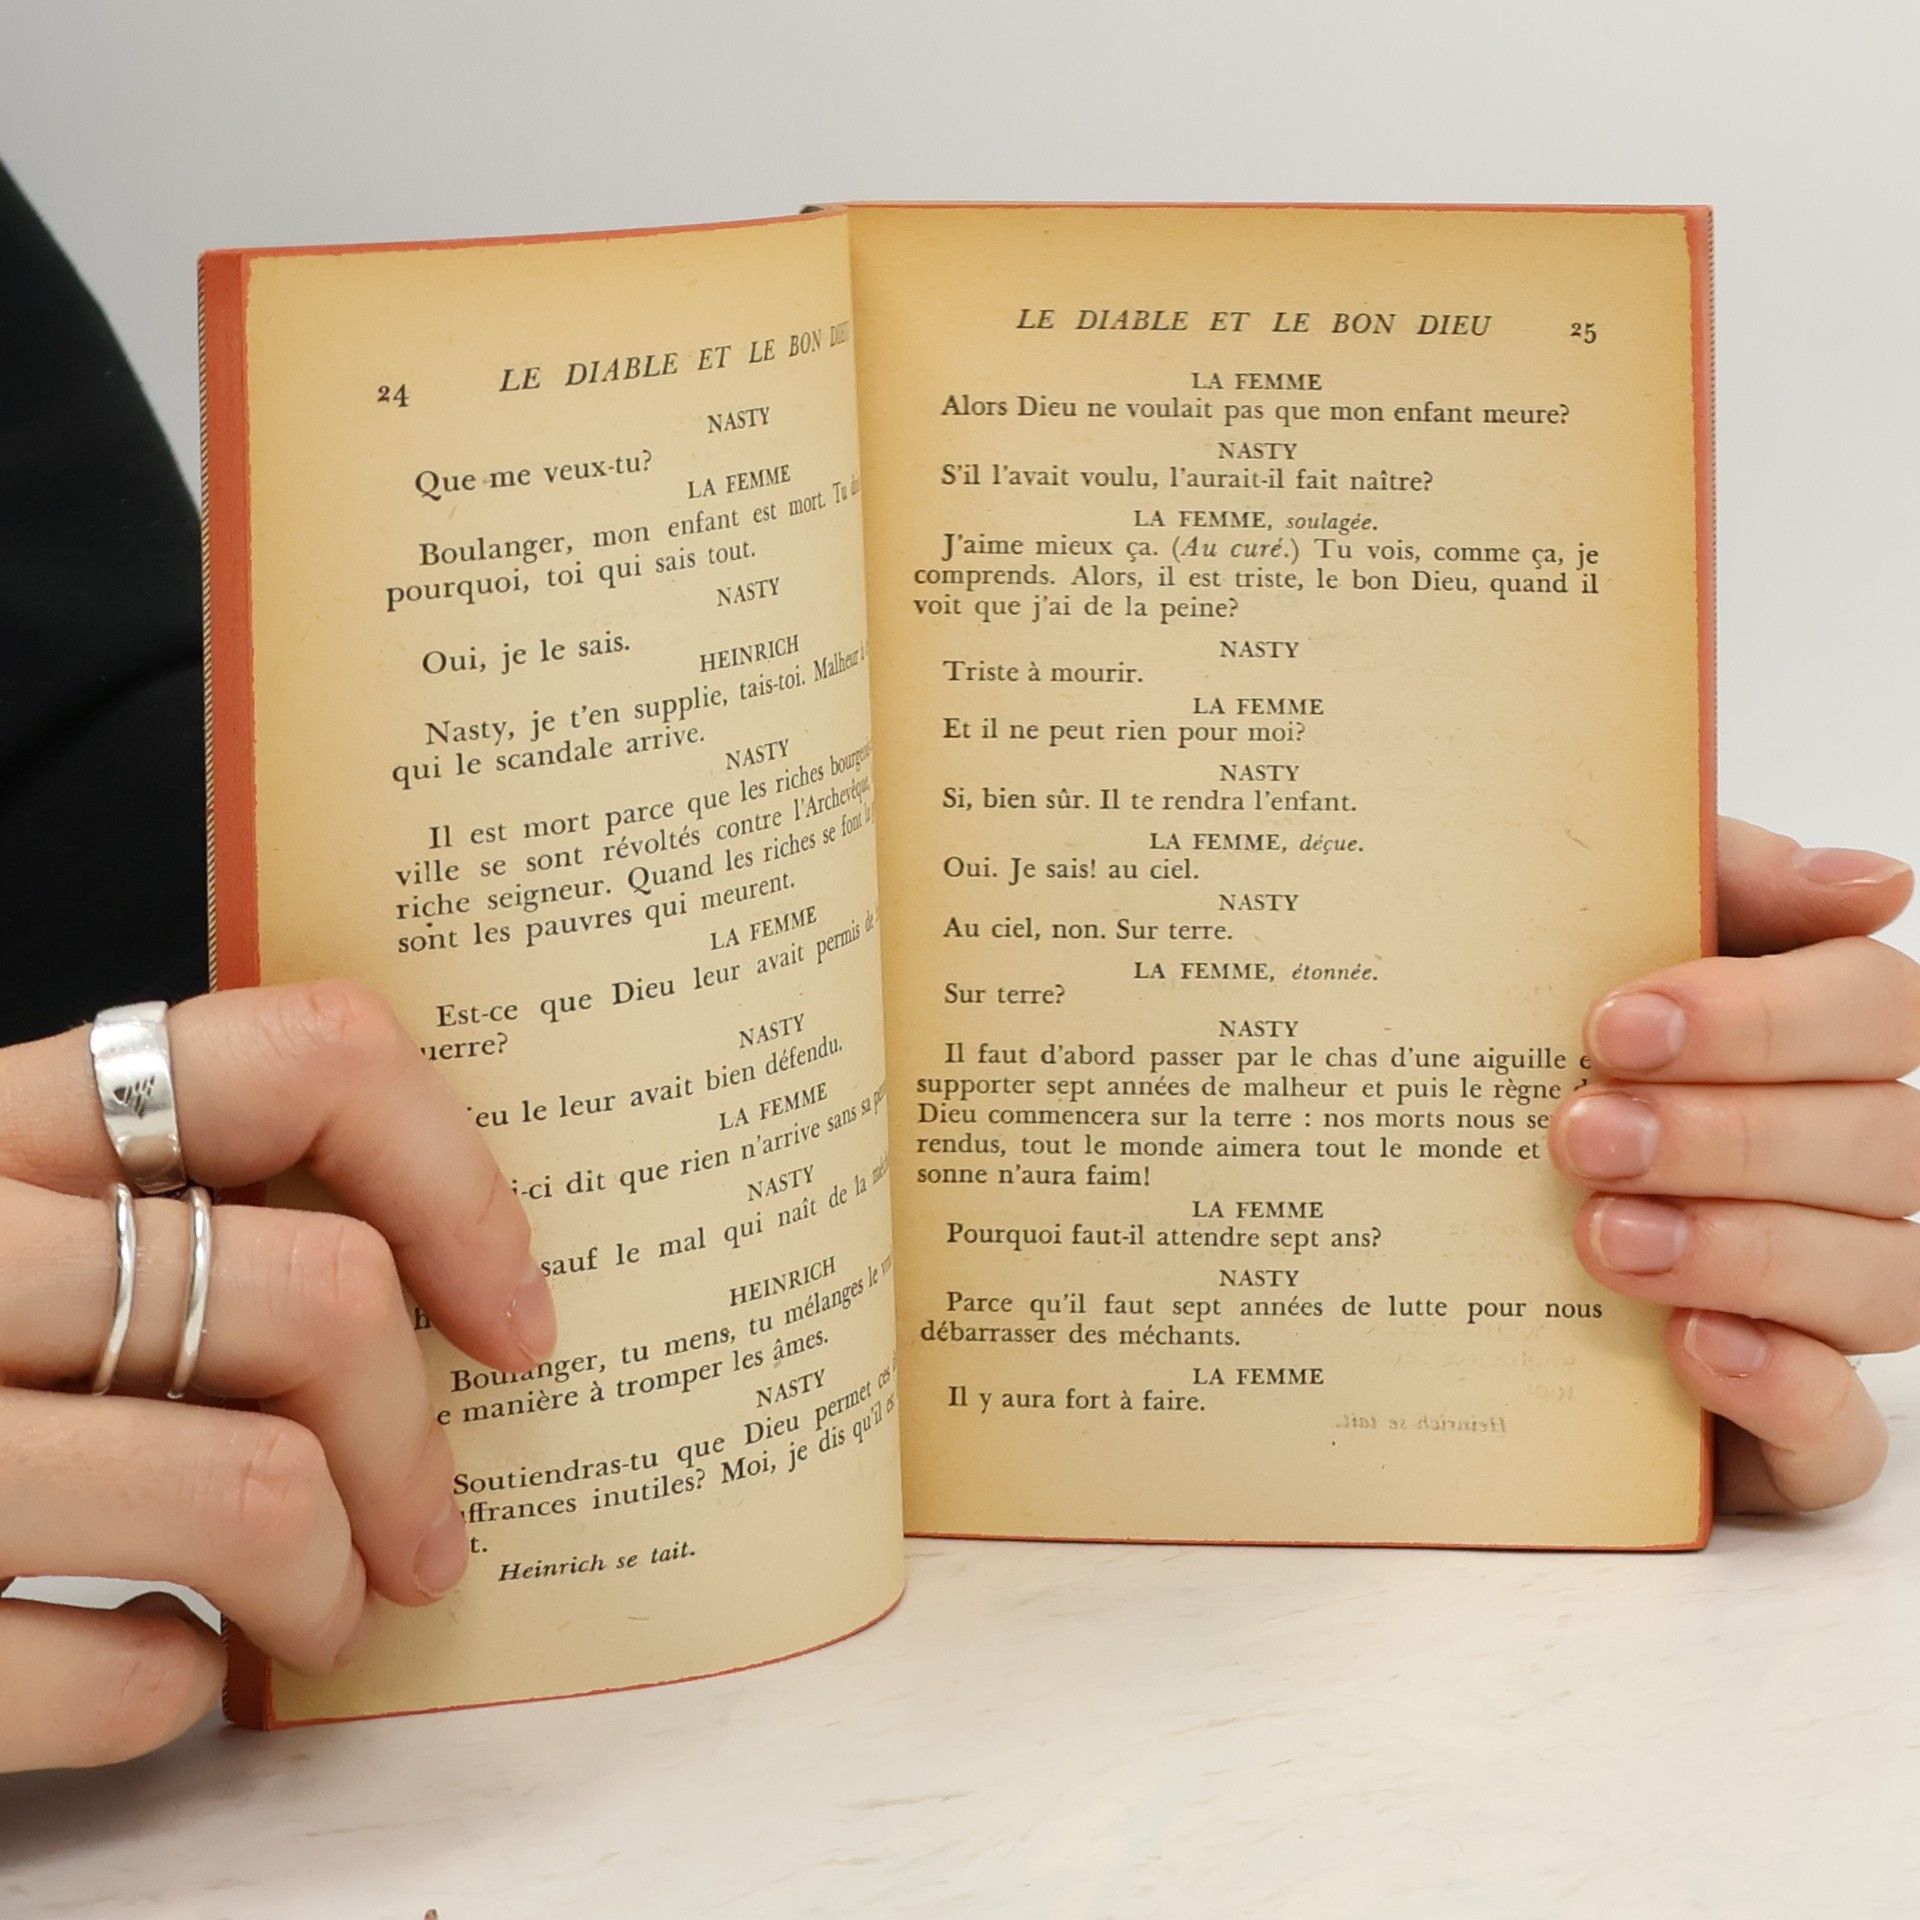 24 LE DIABLE ET LE BON DIEU
NASTY
Que me veux-tu?
LA FEMME
Boulanger, mon enfant est mort. Tu
pourquoi, toi qui sais tout.
NASTY
Oui, je le sais.
HEINRICH
Nasty, je t'en supplie, tais-toi. Malheur à
qui le scandale arrive.
NASTY
Il est mort parce que les riches
ville se sont révoltés contre l'Archevêque,
riche seigneur. Quand les riches se font la
sont les pauvres qui meurent.
LA FEMME
Est-ce que Dieu leur avait permis de
uerre?
NASTY
eu le leur avait bien défendu.
LA FEMME
i-ci dit que rien n'arrive sans sa
NASTY
sauf le mal qui naît de la
HEINRICH
Boulanger, tu mens, tu mélanges le
e manière à tromper les âmes.
NASTY
Soutiendras-tu que Dieu permet ces
ffrances inutiles? Moi, je dis qu'il
t.
Heinrich se tait.
LE DIABLE ET LE BON DIEU 25
LA FEMME
Alors Dieu ne voulait pas que mon enfant meure?
NASTY
S'il l'avait voulu, l'aurait-il fait naître?
LA FEMME, soulagée.
J'aime mieux ça. (Au curé.) Tu vois, comme ça, je
comprends. Alors, il est triste, le bon Dieu, quand il
voit que j'ai de la peine?
NASTY
Triste à mourir.
LA FEMME
Et il ne peut rien pour moi?
NASTY
Si, bien sûr. Il te rendra l'enfant.
LA FEMME, déçue.
Oui. Je sais! au ciel.
NASTY
Au ciel, non. Sur terre.
LA FEMME, étonnée.
Sur terre?
NASTY
Il faut d'abord passer par le chas d'une aiguille e
supporter sept années de malheur et puis le règne
Dieu commencera sur la terre : nos morts nous se
rendus, tout le monde aimera tout le monde et
sonne n'aura faim!
LA FEMME
Pourquoi faut-il attendre sept ans?
NASTY
Parce qu'il faut sept années de lutte pour nous
débarrasser des méchants.
LA FEMME
Il y aura fort à faire.